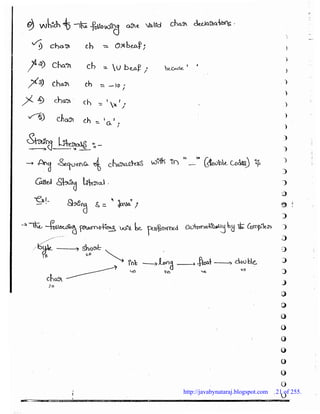 Q) which of the following are valid char declarations.
✓1) char ch = 0xbeaf;
✗2) char ch = \u beaf; because ' '
✗3) char ch = -10;
✗4) char ch = '\*';
✓5) char ch = 'a';
String Literals :-
→ Any Sequence of characters with in "_" (double codes) is
Called String literal.
Ex:- String s = "Java";
→ The following promotions will be performed automatically by the Compiler
byte → short
int → long → float → double
char
http://javabynataraj.blogspot.com 21 of 255.